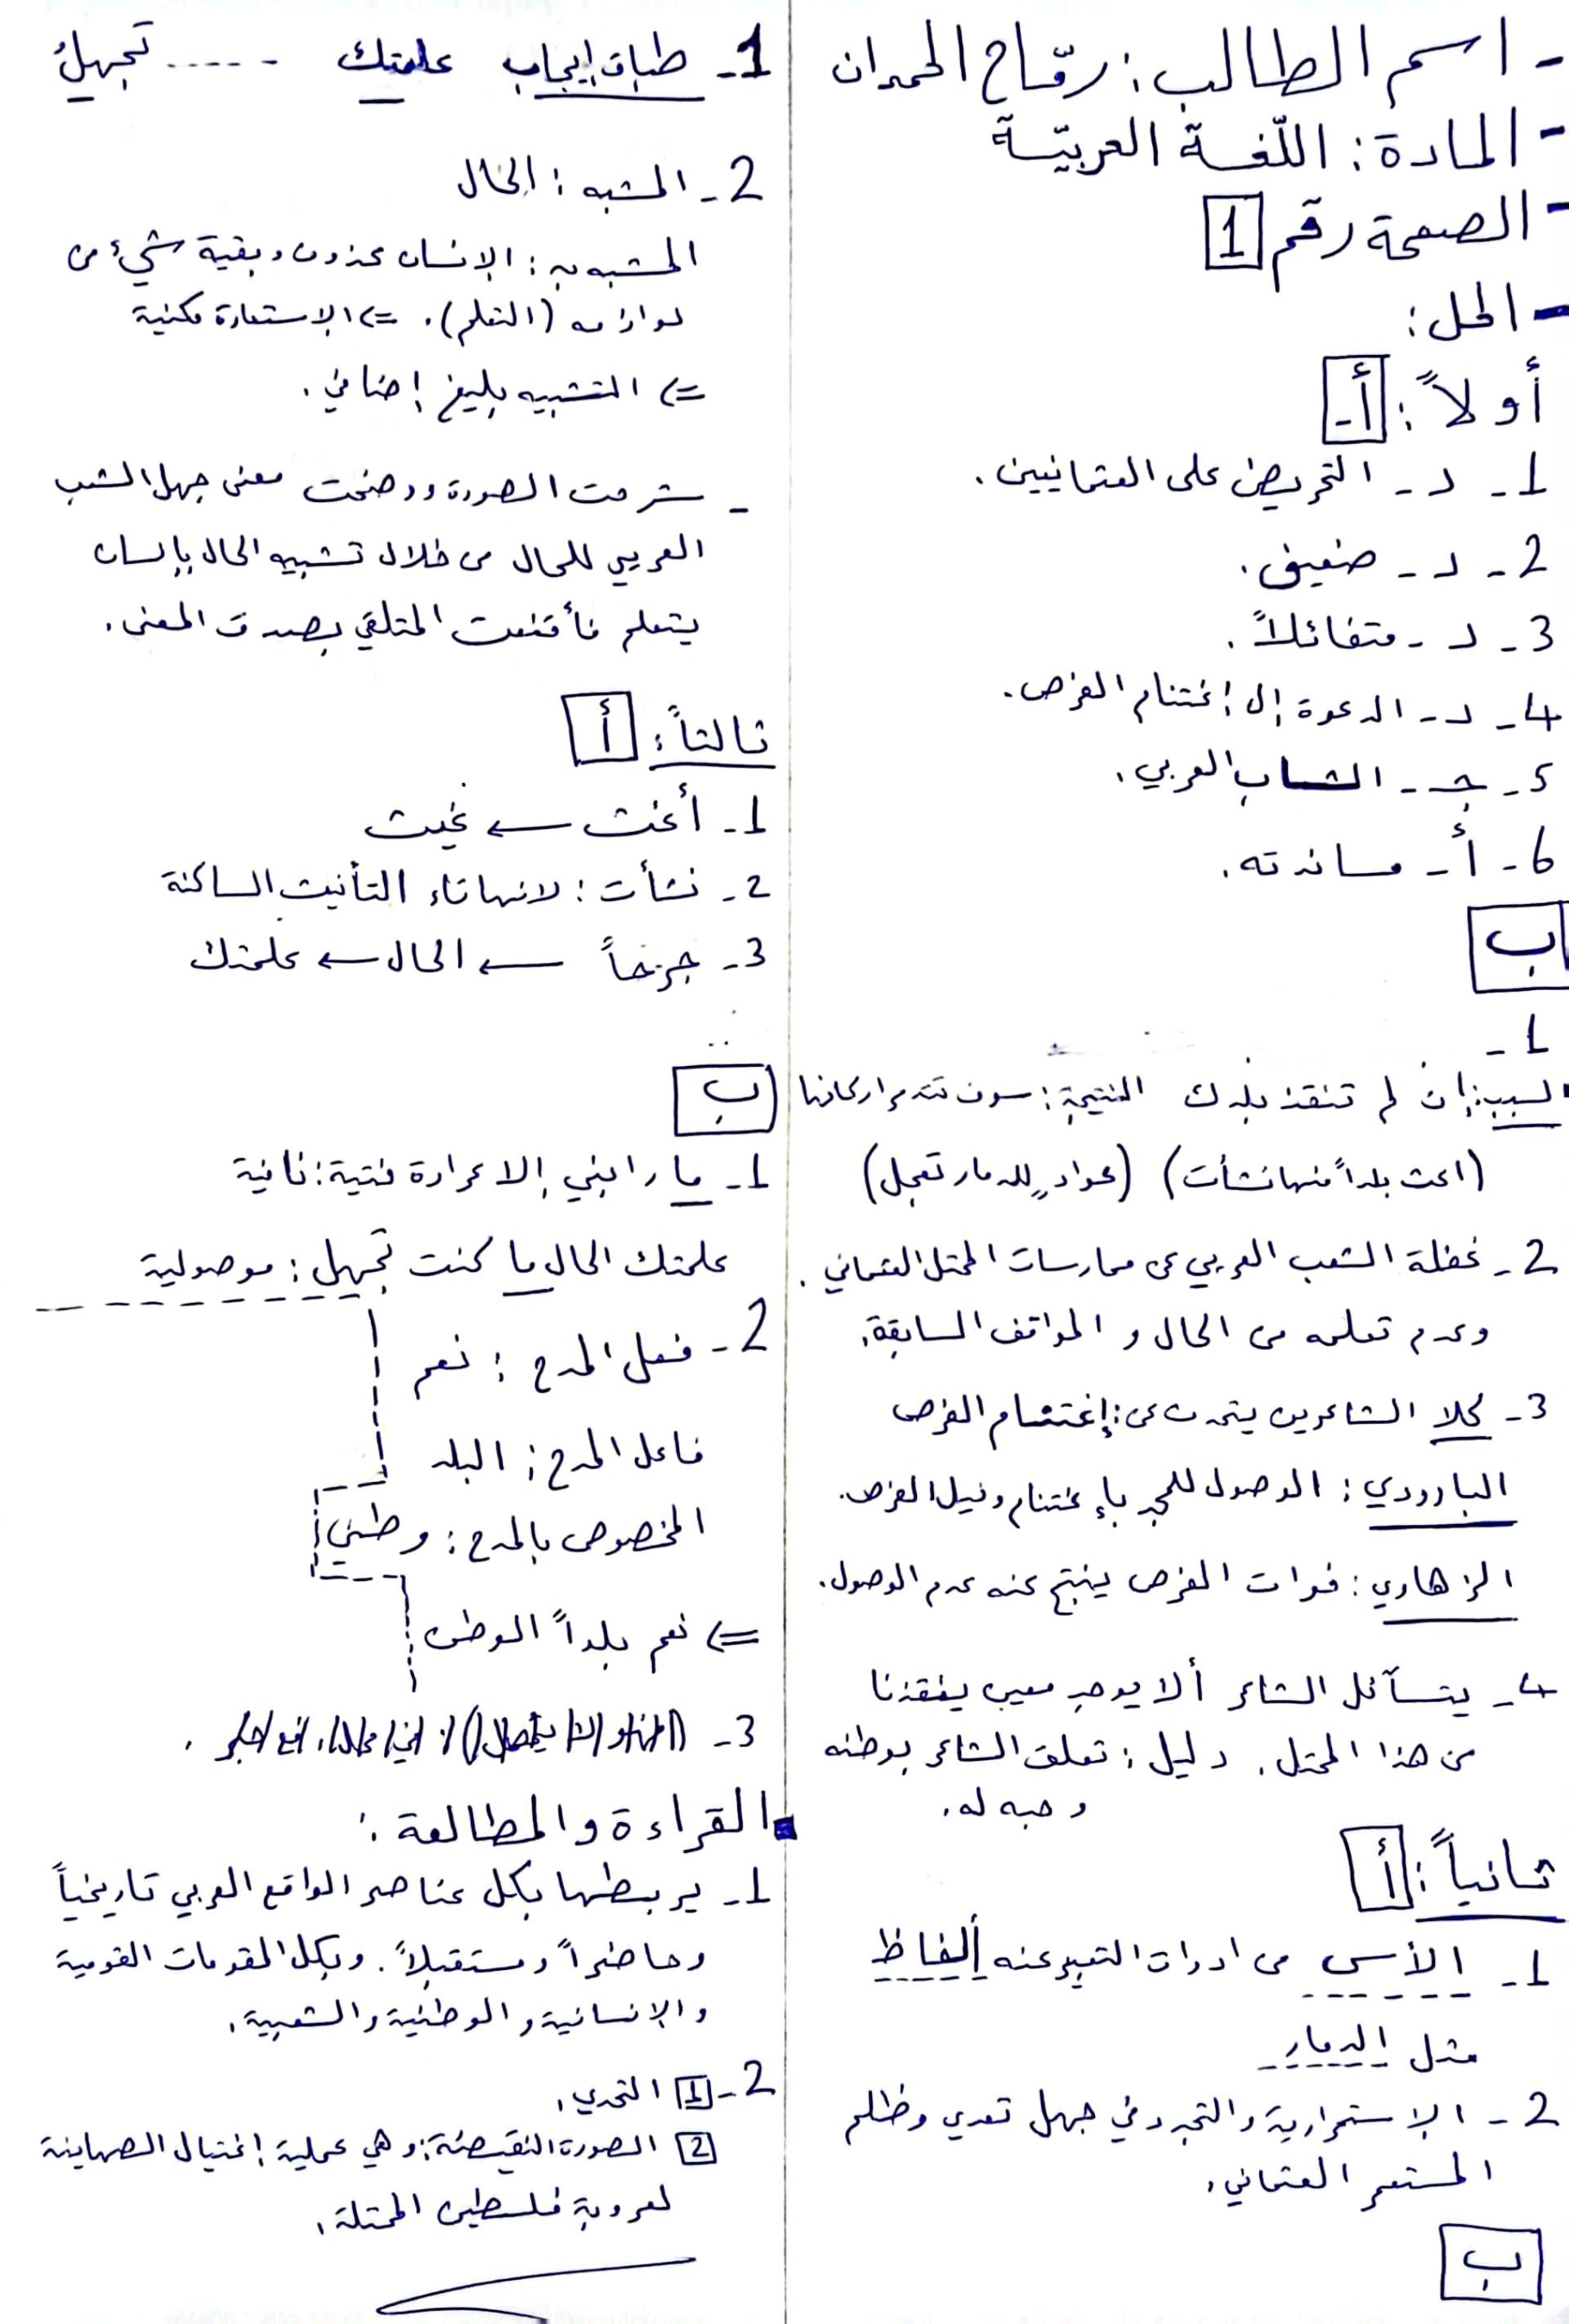 - اسم الطالب: رمّاح الحمدان
- المادة: اللّغة العربيّة
- الصفحة رقم 1
- الحل:
أولاً: أ-
1 - د - التحريض على العثمانيين.
2 - د - ضعيف.
3 - د - متفائلاً.
4 - د - الدعوة إلى إغتنام الفرص.
5 - جـ - الشباب العربي.
6 - أ - مساندته.
ب
1 -
السبب: إن لم تنقذ بلدك النتيجة: سوف تتدمر اركاننا
(اغث بلداً منها نشأت) (عوادٍ للدمار تعجل)
2 - غفلة الشعب العربي عن ممارسات المحتل العثماني.
وعدم تعلمه من الحال و المواقف السابقة.
3 - كلا الشاعرين يتحدث عن: إغتنام الفرص
البارودي: الوصول للمجد بإغتنام ونيل الفرص.
الزهاوي: فوات الفرص ينتج عنه عدم الوصول.
4 - يتسآئل الشاعر ألا يوجد معين ينقذنا
من هذا المحتل. دليل: تعلق الشاعر بوطنه
وحبه له.
ثانياً: أ
1 - الأسى من ادوات التعبير عنه ألفاظ
مثل الدمار
2 - الإستمرارية والتجدد في جهل تعدي وظلم
المستعمر العثماني.
ب
1 - طباق إيجاب علمتك ..... تجهلُ
2 - المشبه: الحال
المشبه به: الإنسان محذوف وبقية شيء من
لوازمه (التعلم). => الإستعارة مكنية
=> التشبيه بليغ إضافي.
- شرحت الصورة ووضحت معنى جهل الشعب
العربي للحال من خلال تشبيه الحال بإنسان
يتعلم فأقنعت المتلقي بصدق المعنى.
ثالثاً: أ
1 - أغث ← غيث
2 - نشأت: لانها تاء التأنيث الساكنة
3 - جزعاً ← الحال ← علمتك
ب
1 - ما رابني إلا غرارة فتية: نافية
علمتك الحال ما كنت تجهل: موصولية
2 - فعل المدح: نعم
فاعل المدح: البلد
المخصوص بالمدح: وطني
=> نعم بلداً الوطن
3 -
القراءة والمطالعة:
1 - يربطها بكل عناصر الواقع العربي تاريخياً
وحاضراً ومستقبلاً. وبكل المقومات القومية
والإنسانية والوطنية والشعبية.
2 - 1 التحدي.
2 الصورة النقيضة: وهي عملية إغتيال الصهاينة
لعروبة فلسطين المحتلة.